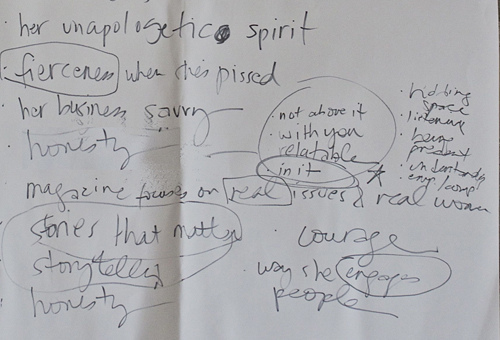 · her unapologetic spirit
· fierceness when she's pissed
· her business savvy
· honesty
· not above it
· with you
relatable
· in it
· holding
space
· listening
· being
present
· understands
magazine focuses on real issues & real women
stories that matter
storytelling
· honesty
· courage
· way she engages
people